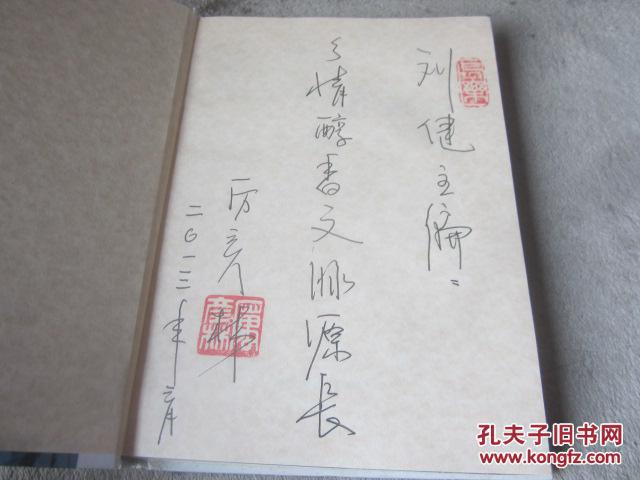 刘健主编：
乡情醇香文脉源长
厉彦林
二〇一三年月
孔夫子旧书网
www.kongfz.com